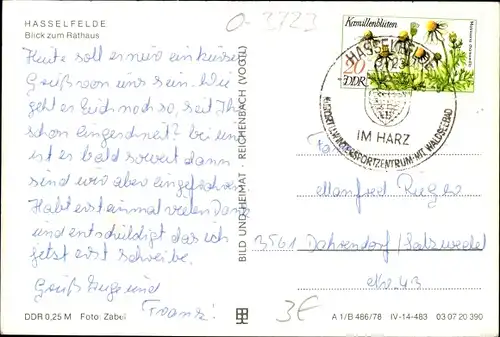 HASSELFELDE
Blick zum Rathaus
o-3723
Heute soll es nur ein kurzer
Gruß von uns sein. Wie
geht es Euch noch so, seit Ihr
schon eingeschneit? bei uns
ist es bald soweit dann
sind wir aber eingefroren
Habt erst einmal vielen Dank
und entschuldigt das ich
jetzt erst schreibe.
Gruß Inge und
Frank!
DDR 0,25 M Foto: Zabel
BILD UND HEIMAT · REICHENBACH (VOGTL)
Kamillenblüten
20
DDR
HASSELFELDE
3723
IM HARZ
KURORT U. WINTERSPORTZENTRUM MIT WALDSEEBAD
Fam.
Manfred
3561 Dahrendorf/Salzwedel
No. 43
3€
A 1/B 486/78 IV-14-483 03 07 20 390